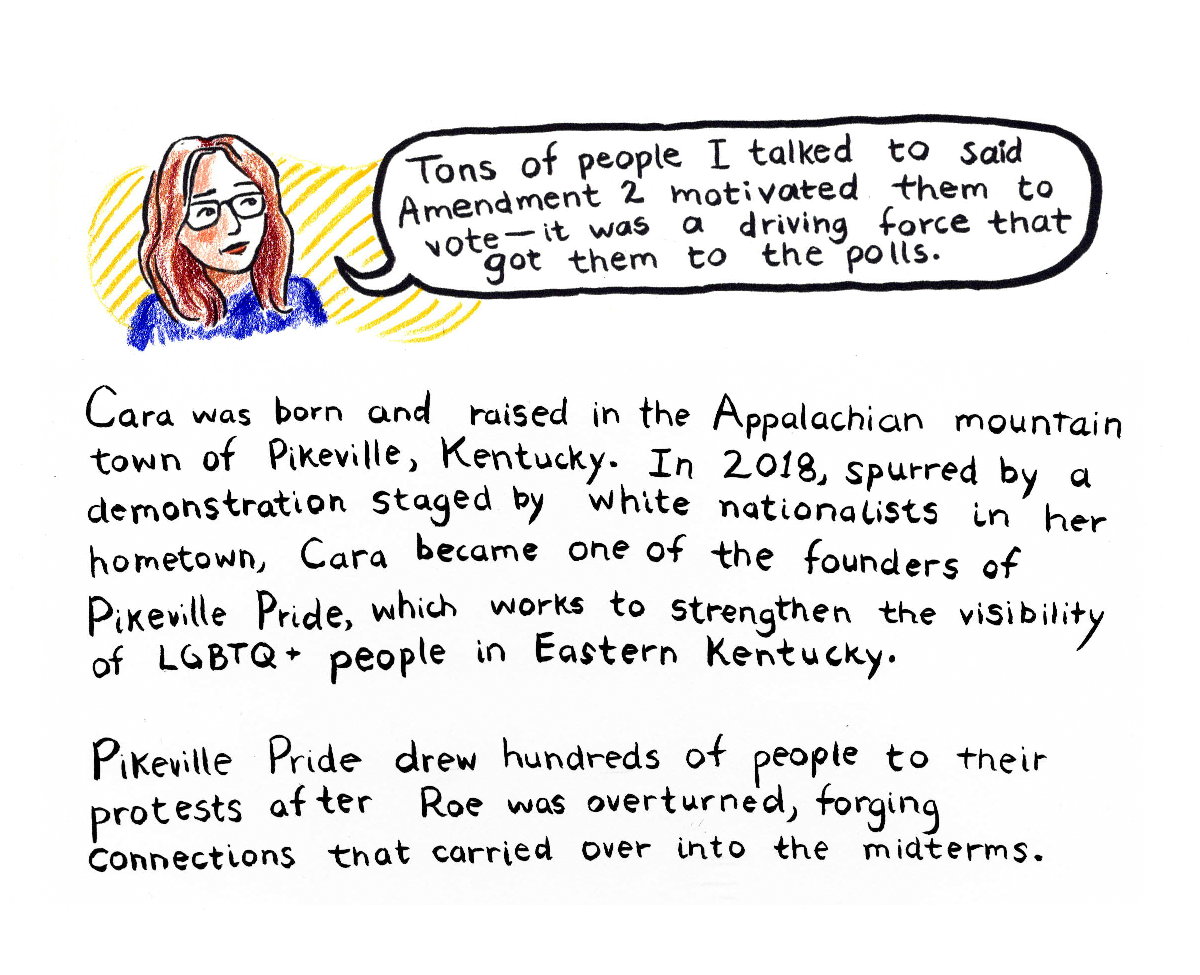 Tons of people I talked to said
Amendment 2 motivated them to
vote—it was a driving force that
got them to the polls.
Cara was born and raised in the Appalachian mountain
town of Pikeville, Kentucky. In 2018, spurred by a
demonstration staged by white nationalists in her
hometown, Cara became one of the founders of
Pikeville Pride, which works to strengthen the visibility
of LGBTQ+ people in Eastern Kentucky.
Pikeville Pride drew hundreds of people to their
protests after Roe was overturned, forging
connections that carried over into the midterms.